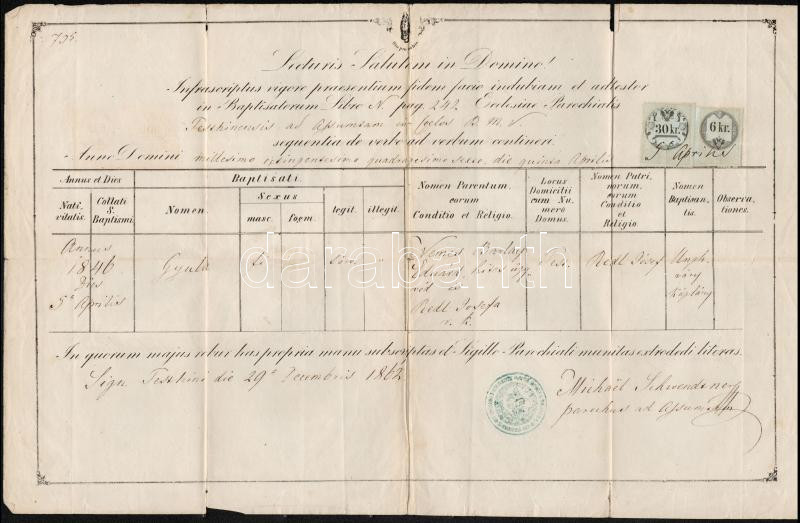 795.
Lecturis Salutem in Domino!
Infrascriptus vigore praesentium fidem facio indubiam et adtestor
ex Baptisatorum Libro N. pag. 242. Ecclesiae Parochialis
Pesthinensis ad Assumtam in Coelos B. M. V.
sequentia de verbo ad verbum contineri.
Anno Domini millesimo octingentesimo quadragesimo sexto, die quinta Aprilis
30 kr.
6 kr.
5 Aprilis
Annus et Dies
Nati-
vitatis.
Collati
S.
Baptismi.
Baptisati.
Nomen.
Sexus
masc.
foem.
legit.
illegit.
Nomen Parentum,
eorum
Conditio et Religio.
Locus
Domicilii
cum Nu-
mero
Domus.
Nomen Patri-
norum,
eorum
Conditio
et
Religio.
Nomen
Baptisan-
tis.
Observa-
tiones.
Annus
1846
Dies
5a Aprilis
Gyula
"
"
Nemes
Eduard
és
Redl Josefa
r. k.
Pest.
Redl József
káplány
In quorum majus robur has propria manu subscriptas et Sigillo Parochiali munitas extradedi literas.
Sign. Pesthini die 29a Decembris 1862
Michaël Schwendtner
parochus ad Assumtam
darabanth